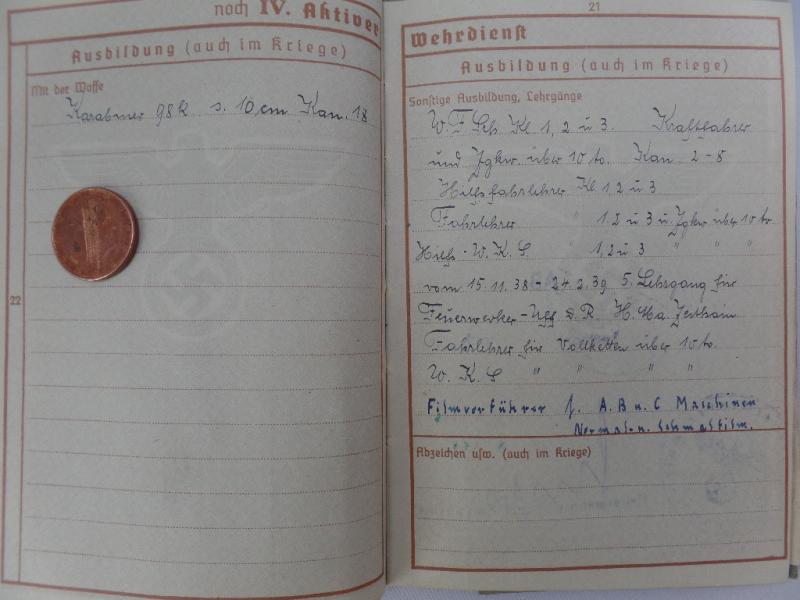 noch IV. Aktiver
Ausbildung (auch im Kriege)
Mit der Waffe
Karabiner 98k s. 10 cm Kan. 18
22
21
Wehrdienst
Ausbildung (auch im Kriege)
Sonstige Ausbildung, Lehrgänge
W. F. Sch. Kl 1, 2 u 3. Kraftfahrer
und Zgkw. über 10 to. Kan. 2-8
Hilfsfahrlehrer Kl. 1 2 u 3
Fahrlehrer " 1 2 u 3 u. Zgkw über 10 to
Hilfs-W. K. S. 1, 2 u 3 " " "
vom 15. 11. 38 - 24. 2. 39 5. Lehrgang für
Feuerwerker-Uffz. d. R. H. Ma. Zeithain
Fahrlehrer für Vollketten über 10 to.
W. K. S " " " "
Filmvorführer f. A. B u. C Maschinen
Normal- u. Schmalfilm.
Abzeichen usw. (auch im Kriege)